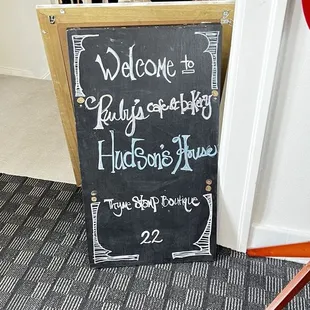 Welcome to
Ruby's cafe & bakery
Hudson's House
Thyme Stamp Boutique
22